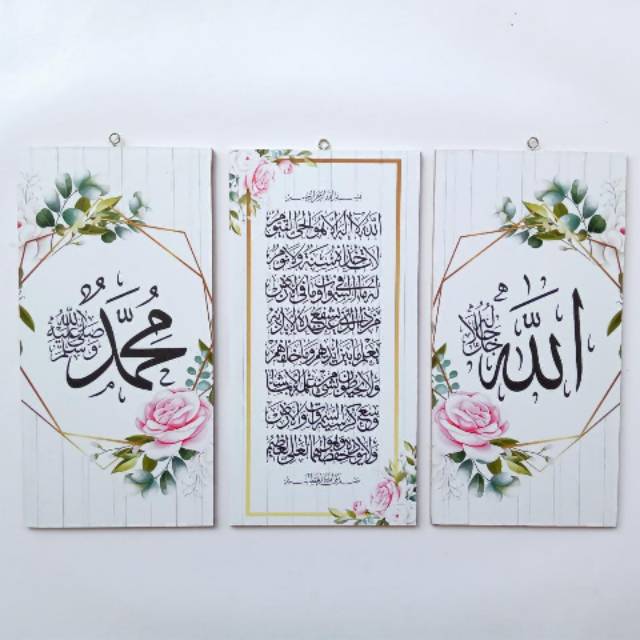 الله جل جلاله
بسم الله الرحمن الرحيم
الله لا إله إلا هو الحي القيوم
لا تأخذه سنة ولا نوم
له ما في السموات وما في الأرض
من ذا الذي يشفع عنده إلا بإذنه
يعلم ما بين أيديهم وما خلفهم
ولا يحيطون بشيء من علمه إلا بما شاء
وسع كرسيه السموات والأرض
ولا يؤوده حفظهما وهو العلي العظيم
صدق الله العظيم
محمد صلى الله عليه وسلم